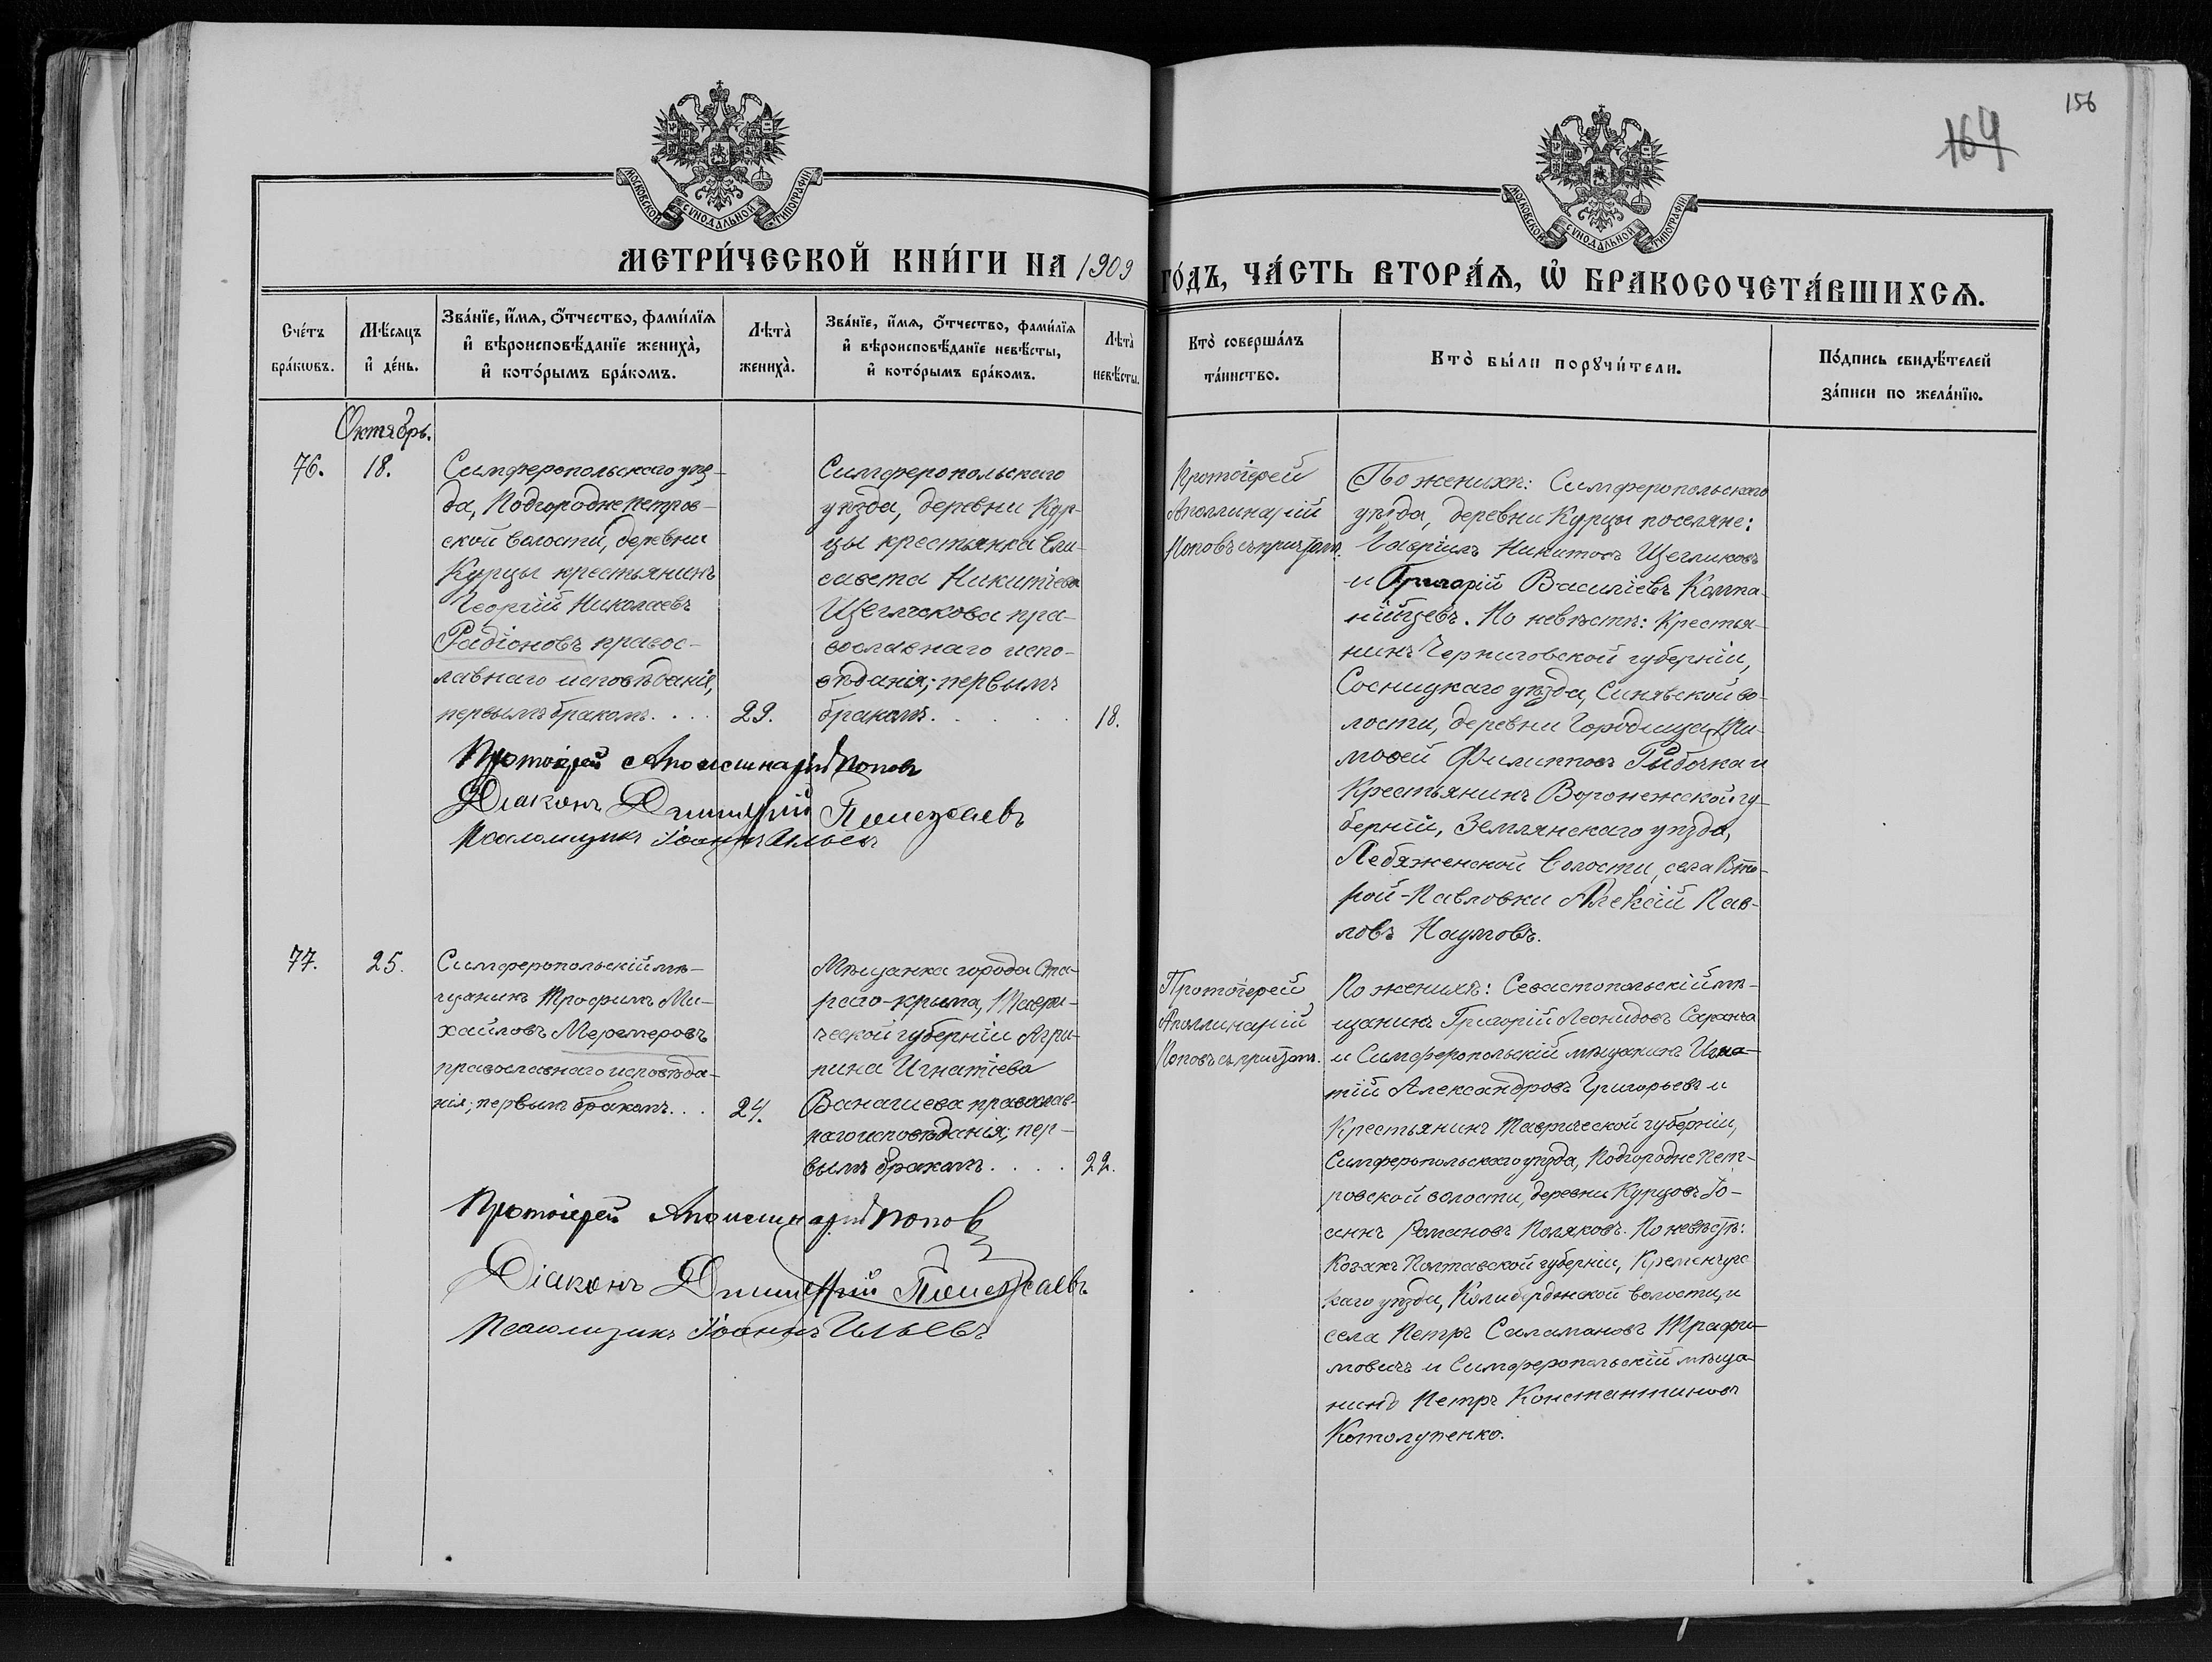 156
164
МОСКОВСКОЙ СѴНОДАЛЬНОЙ ТИПОГРАФІИ
МОСКОВСКОЙ СѴНОДАЛЬНОЙ ТИПОГРАФІИ
МЕТРИ́ЧЕСКОЙ КНИ́ГИ НА 1909
ГО́ДЪ, ЧА́СТЬ ВТОРА́Ѧ, Ѡ҆ БРАКОСОЧЕТА́ВШИХСѦ.
Сче́тъ
бра́кѡвъ.
Мѣ́сяцъ
и҆ де́нь.
Зва́нїе, и҆́мя, о҆́тчество, фами́лїя
и҆ вѣроисповѣ́данїе жениха̀,
и҆ кото́рымъ бра́комъ.
Лѣта̀
жениха̀.
Зва́нїе, и҆́мя, о҆́тчество, фами́лїя
и҆ вѣроисповѣ́данїе невѣ́сты,
и҆ кото́рымъ бра́комъ.
Лѣта̀
невѣ́сты.
Кто̀ соверша́лъ
та́инство.
Кто̀ бы́ли порꙋчи́тели.
По́дпись свидѣ́телей
за́писи по жела́нїю.
Октябрь.
76.
18.
Симферопольскаго уѣз-
да, Подгородне Петров-
ской волости, деревни
Курцы крестьянинъ
Георгій Николаевъ
Радіоновъ правос-
лавнаго исповѣданія,
первымъ бракомъ. . . .
29.
Симферопольскаго
уѣзда, деревни Кур-
цы крестьянка Ели-
савета Никитіева
Щеглакова пра-
вославнаго испо-
вѣданія; первымъ
бракомъ. . . . .
18.
Протоіерей Аполлинарій Поповъ
Діаконъ Димитрій
Псаломщикъ Іоаннъ Ильевъ
Протоіерей
Аполлинарій
Поповъ съ причтомъ.
По женихѣ: Симферопольскаго
уѣзда, деревни Курцы поселяне:
Гавріилъ Никитовъ Щегликовъ
и Григорій Василіевъ Компа-
нійцевъ. По невѣстѣ: Крестья-
нинъ Черниговской губерніи,
Сосницкаго уѣзда, Синявской во-
лости, деревни Городища, Ти-
моѳей Филипповъ Рыбочка и
Крестьянинъ Воронежской гу-
берніи, Землянскаго уѣзда,
Лебяженской волости, села Вто-
рой-Павловки Алексій Пав-
ловъ Наумовъ.
77.
25.
Симферопольскій мѣ-
щанинъ Трофимъ Ми-
хайловъ Меремеровъ
православнаго исповѣда-
нія; первымъ бракомъ. . .
24.
Мѣщанка города Ста-
раго-крыма, Таври-
ческой губерніи Агри-
пина Игнатіева
Ванагиева православ-
наго исповѣданія; пер-
вымъ бракомъ. . . .
22.
Протоіерей Аполлинарій Поповъ
Діаконъ Димитрій
Псаломщикъ Іоаннъ Ильевъ
Протоіерей
Аполлинарій
Поповъ съ причтомъ.
По женихѣ: Севастопольскій мѣ-
щанинъ Григорій Леонидовъ Саранча
и Симферопольскій мѣщанинъ Игна-
тій Александровъ Григорьевъ и
Крестьянинъ Таврической губерніи,
Симферопольскаго уѣзда, Подгородне Пет-
ровской волости, деревни Курцовъ Іо-
аннъ Романовъ Поляковъ. По невѣстѣ:
Козакъ Полтавской губерніи, Кременчугс
каго уѣзда, Келибердянской волости, и
села Петръ Саламановъ Трафи-
мовичъ и Симферопольскій мѣща-
нинъ Петръ Константиновъ
Котолупенко.